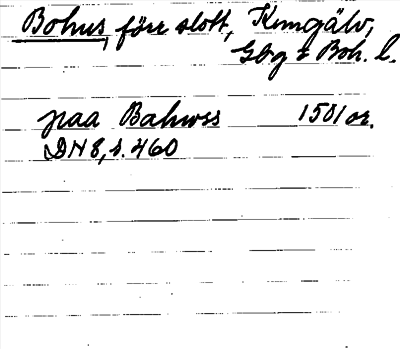 Bohus, förr slott, Kungälv,
Gbg o Boh. l.
paa Bahwss 1501 or.
DN 8, s. 460